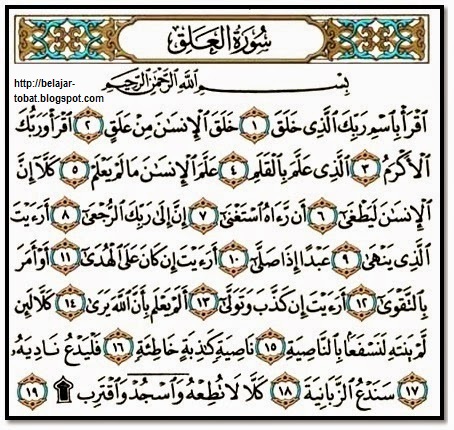 سُورَةُ العَلَقِ
http://belajar-
tobat.blogspot.com
بِسْمِ اللَّهِ الرَّحْمَٰنِ الرَّحِيمِ
ٱقْرَأْ بِٱسْمِ رَبِّكَ ٱلَّذِى خَلَقَ ١ خَلَقَ ٱلْإِنسَٰنَ مِنْ عَلَقٍ ٢ ٱقْرَأْ وَرَبُّكَ
ٱلْأَكْرَمُ ٣ ٱلَّذِى عَلَّمَ بِٱلْقَلَمِ ٤ عَلَّمَ ٱلْإِنسَٰنَ مَا لَمْ يَعْلَمْ ٥ كَلَّآ إِنَّ
ٱلْإِنسَٰنَ لَيَطْغَىٰٓ ٦ أَن رَّءَاهُ ٱسْتَغْنَىٰٓ ٧ إِنَّ إِلَىٰ رَبِّكَ ٱلرُّجْعَىٰٓ ٨ أَرَءَيْتَ
ٱلَّذِى يَنْهَىٰ ٩ عَبْدًا إِذَا صَلَّىٰٓ ١٠ أَرَءَيْتَ إِن كَانَ عَلَى ٱلْهُدَىٰٓ ١١ أَوْ أَمَرَ
بِٱلتَّقْوَىٰٓ ١٢ أَرَءَيْتَ إِن كَذَّبَ وَتَوَلَّىٰٓ ١٣ أَلَمْ يَعْلَم بِأَنَّ ٱللَّهَ يَرَىٰ ١٤ كَلَّا لَئِن
لَّمْ يَنتَهِ لَنَسْفَعًۢا بِٱلنَّاصِيَةِ ١٥ نَاصِيَةٍ كَٰذِبَةٍ خَاطِئَةٍ ١٦ فَلْيَدْعُ نَادِيَهُۥ
١٧ سَنَدْعُ ٱلزَّبَانِيَةَ ١٨ كَلَّا لَا تُطِعْهُ وَٱسْجُدْ وَٱقْتَرِب ۩ ١٩